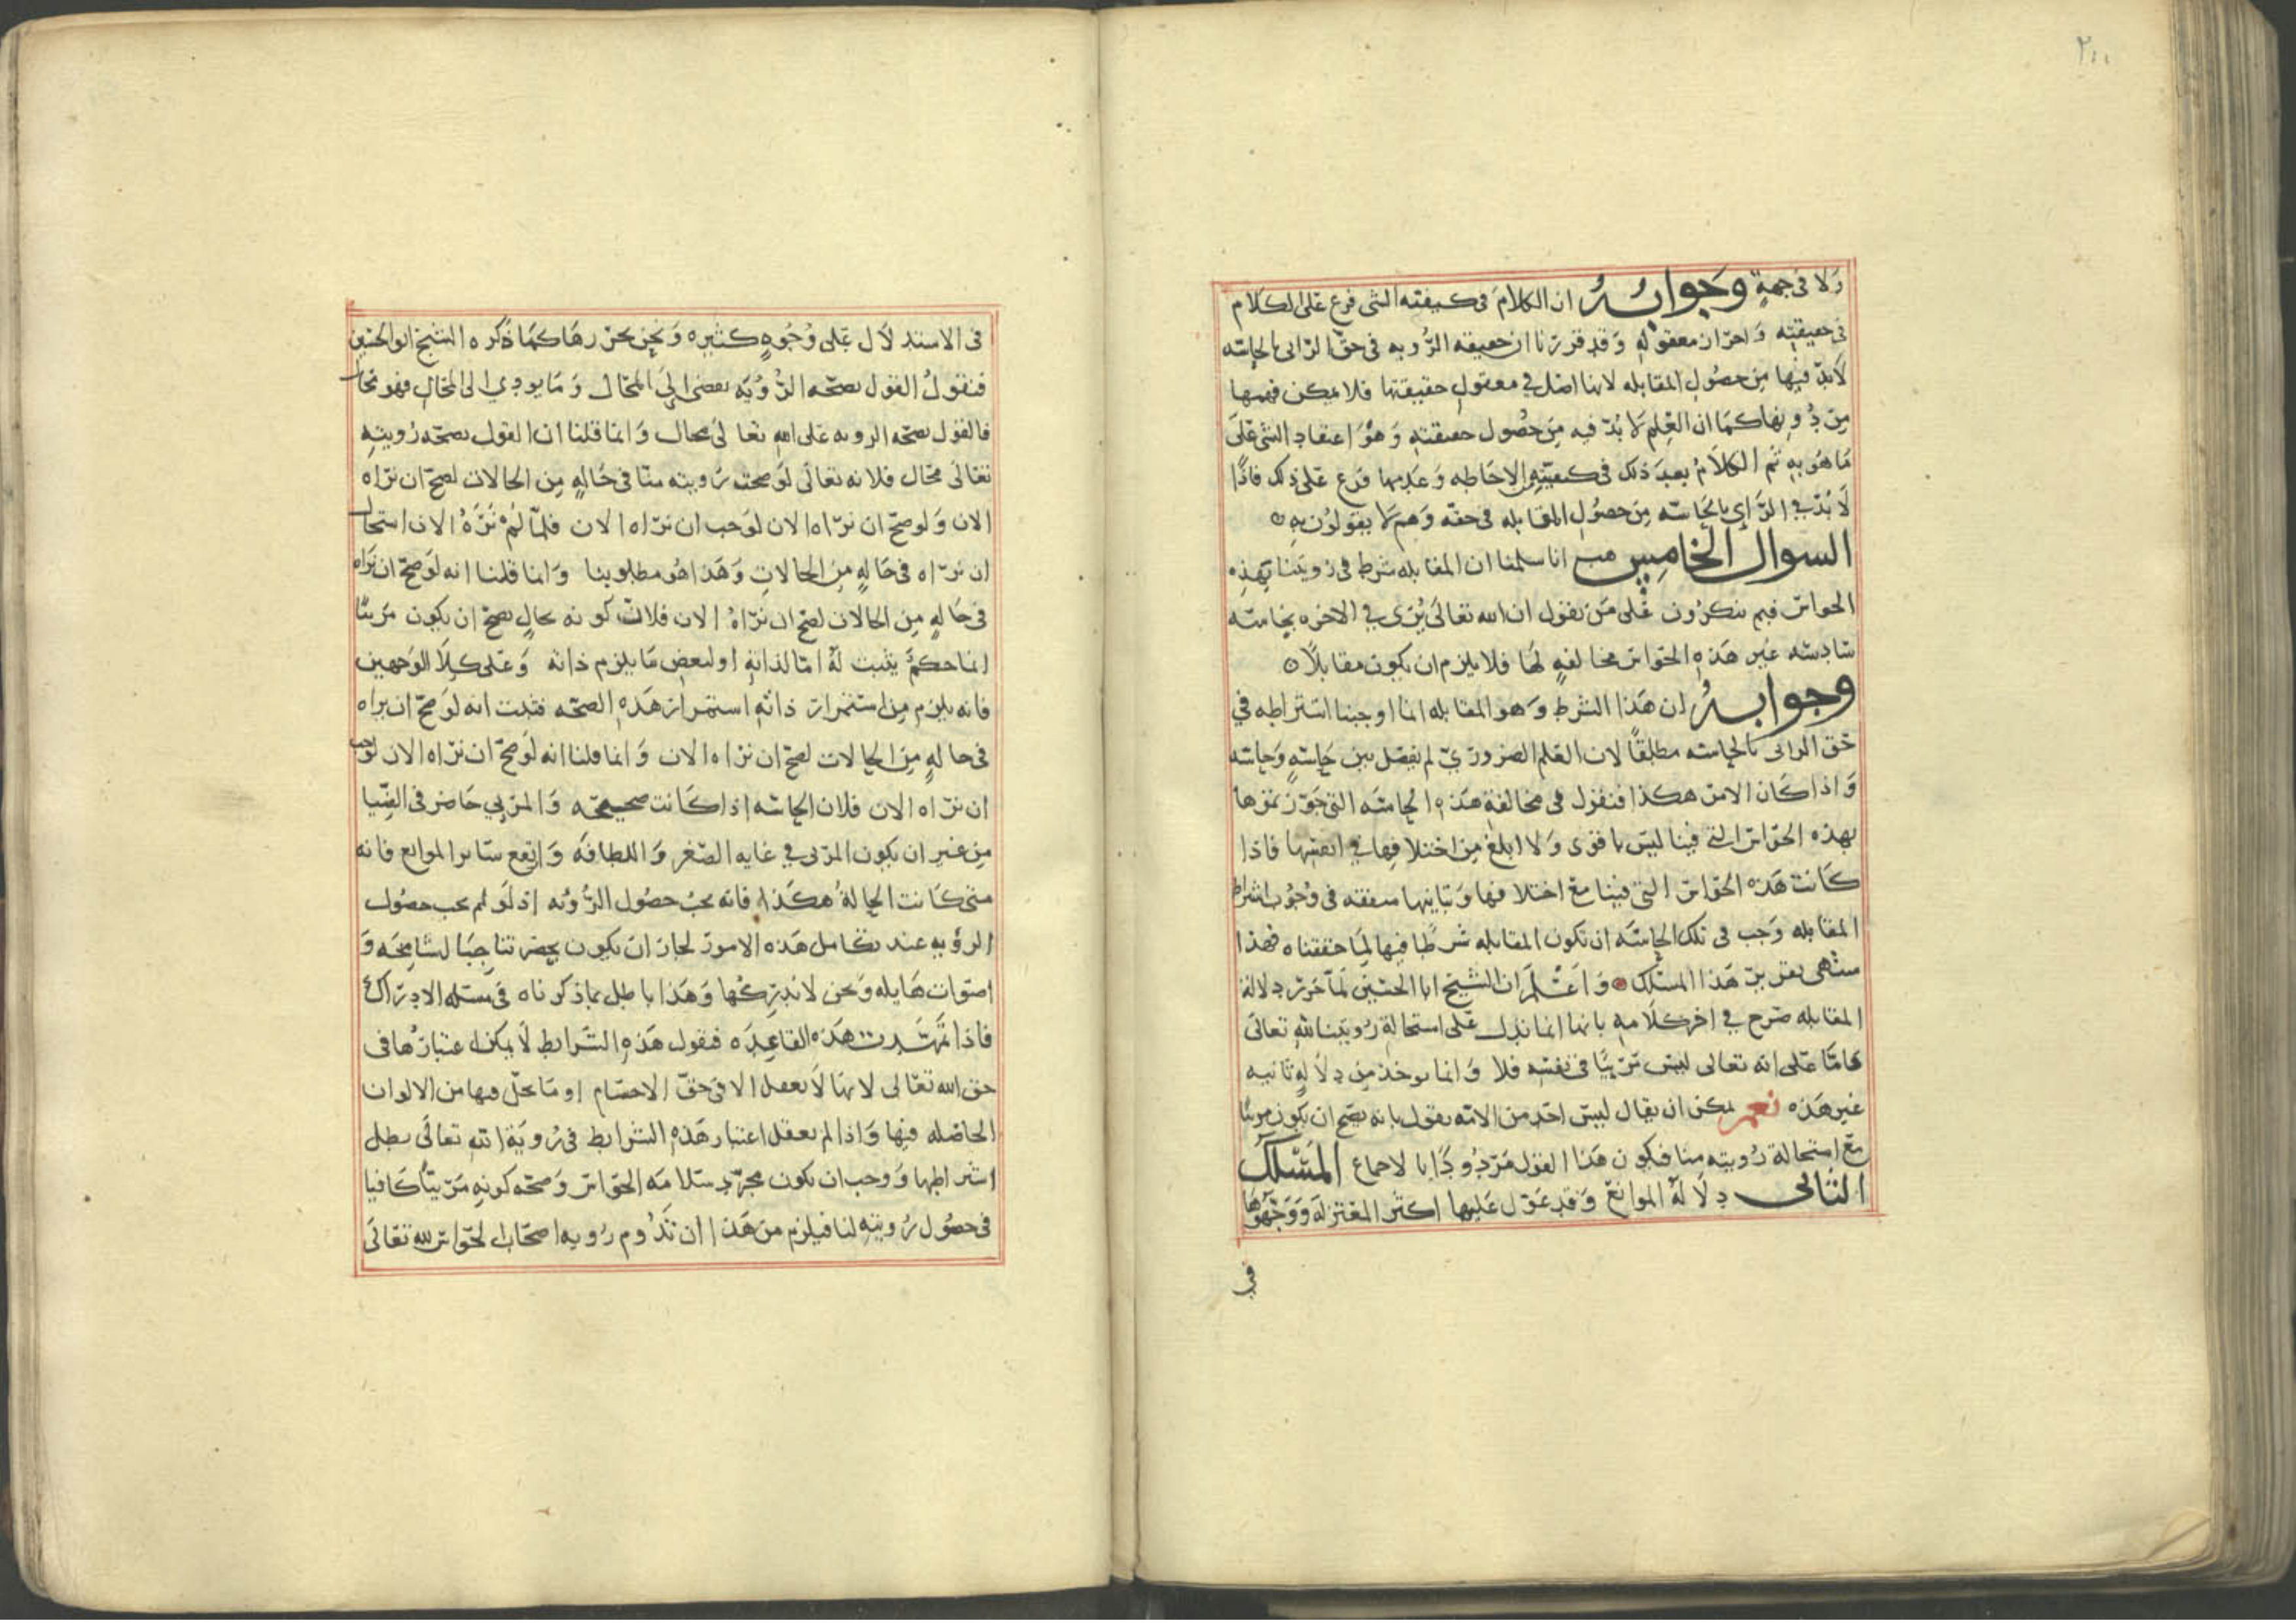 ٢١١
ولا فى جهةٍ وَجوابُهُ ان الكلامَ فى كيفيته الشى فرع على الكلام
فى حقيقتِه وَاحرَان معقولهِ وَقد قررنا ان حقيقه الرُّويه فى حقّ الرآى بالحاسّه
لابدّ فيها مِن حصُول المقابله لانها اصل في معقول حقيقتها فلا يمكن فهمها
مِن دُونِها كمَا ان العِلم لا بُدّ فيه مِن حصُول حقيقته وَهوَ اعتقاد الشى على
مَا هُوَ بِه ثم الكلامُ بعدَ ذلك فى كيفيّته الاحَاطه وَعَدمها فرع على ذلك فاذًا
لا بُدّ في الرَّاى بالحَاسّه مِن حصُول المقابله فى حقّه وَهم لا يقولوُن به
السوال الخامِس هب انا سلمنا ان المقابله شرط فى رويتنا بهَذِه
الحواسّ فبم تنكرُون عَلى مَن يقول ان الله تعالى يُرَى في الاخره بحَاسّه
سَادسّه غير هَذهِ الحَواسّ مخالفهٍ لهَا فلا يلزم ان يكون مقابلاً
وجوابهُ ان هَذا الشرط وَهو المقابله انما اوجبنا اشتراطه في
حَق الرائى بالحاسّه مطلقًا لان العَلم الضروريّ لم يفصل بين حَاسّهٍ وَحاسّه
وَاذا كان الامر هكذا فنقول فى مخالفة هَذهِ الحاسّه التى جَوّزتموها
بهذه الحوَاسّ التى فينا ليس باقوى وَلا ابلغ مِن اختلافِها في انفسها فاذا
كَانت هَذه الحَواسّ التى فينا معَ اختلافها وَتباينها متفقه فى وُجُوب اشتراط
المقابله وَجب فى تلك الحاسّه ان تكون المقابله شرطًا فيها لِمَا حققناه فهذا
منتهى تقرير هَذا المسلك وَاعْلَم ان الشيخ ابا الحسَين لمّا حَرّر دلالة
المقابله صَرح في اخر كلامه بانها انما تدل عَلى استحالة رُويتنا لله تعالى
فامّا عَلى انه تعالى ليس مَرئيًّا فى نفسِه فلا وَانما يوخذ مِن دلالهٍ ثانيه
غير هَذه نعم يمكن ان يقال ليس احَد من الامّه يقول بانه يصح ان يكون مرئيًّا
مع استحالة رُويته منا فيكون هَذا القول مَردُودًا بالاجماع المَسْلَكُ
الثانى دلالَة الموانعْ وَقد عَوّل عَليها اكثر المعتزلَه وَوَجّهُوهَا
فى
فى الاستدلال عَلى وُجُوهٍ كثيره وَنحن نحرّرها كمَا ذكره الشيخ ابو الحسَين
فنقول القول بصحّه الرُّوُيَه يفضى الىَ المحَال وَمَا يودي الى المحَال فهو محَال
فالقول بصحّه الرويه على الله تعالى محال وَانما قلنا ان القول بصحّه رويته
تعَالى محَال فلانه تعَالى لوَ صحت رُويته منّا فى حَالهٍ مِن الحالات لصَحّ ان نرَاه
الان وَلو صحّ ان نرَاه الان لوَجب ان نرَاه الان فلمّا لَمْ نَرَهُ الان استحال
ان نرَاه فى حَالهٍ مِن الحالاتِ وَهَذا هُو مطلوبنا وَانما قلنا انه لوَ صَحّ ان نَرَاه
فى حَالهٍ مِن الحالات لصَح ان نرَاهُ الان فلانّ كونه بحالٍ يصحّ ان يكون مَرئيًّا
انما حكمٌ يثبت لهُ امّا لذاته او لبعض مَا يلزم ذاته وَعَلى كِلا الوَجهين
فانه يلزم مِن استمرار ذاته استمرار هَذه الصحّه فثبت انه لوَ صَحّ ان نراه
فى حالهٍ مِن الحالات لصحّ ان نرَاه الان وَانما قلنا انه لوَ صَحّ ان نرَاه الان لوَجب
ان نرَاه الان فلان الحاسّه اذا كَانت صحيحَه وَالمرئي حَاضر فى
مِن غير ان يكون المرئى في غايه الصّغر وَاللطافَه وَارتفع سَائر الموانع فانه
متى كانت الحالةُ هكَذا فانه يجبُ حصُول الرُّويه اذ لَو لم يجب حصُول
الرؤيه عند تكامل هَذه الامور لجاز ان يكون بحضرتنا جبَال شامخه وَ
اصَوات هَايله وَنحن لا ندركُها وَهَذا باطل بما ذكرناه فى مسَله الادرَاك
فاذا تمهّدت هَذه القاعِدَه فنقول هَذهِ الشَرايط لا يمكن اعتبارُها فى
حق الله تعَالى لانهَا لا تعقل الا فى حَقّ الاجسَام او مَا يحلّ فيها من الالوان
الحاصله فيها وَاذا لم يعقل اعتبار هَذهِ الشرايط فى رُويَة الله تعالَى بطل
اشتراطها وَوجب ان يكون مجرّد سَلامَه الحوَاسّ وَصحّه كونِه مَرئيًّا كَافيا
فى حصُول رُويتهِ لنا فيلزم من هَذا ان تَدُوم رُويه اصحَاب الحَواسّ لله تعَالَى